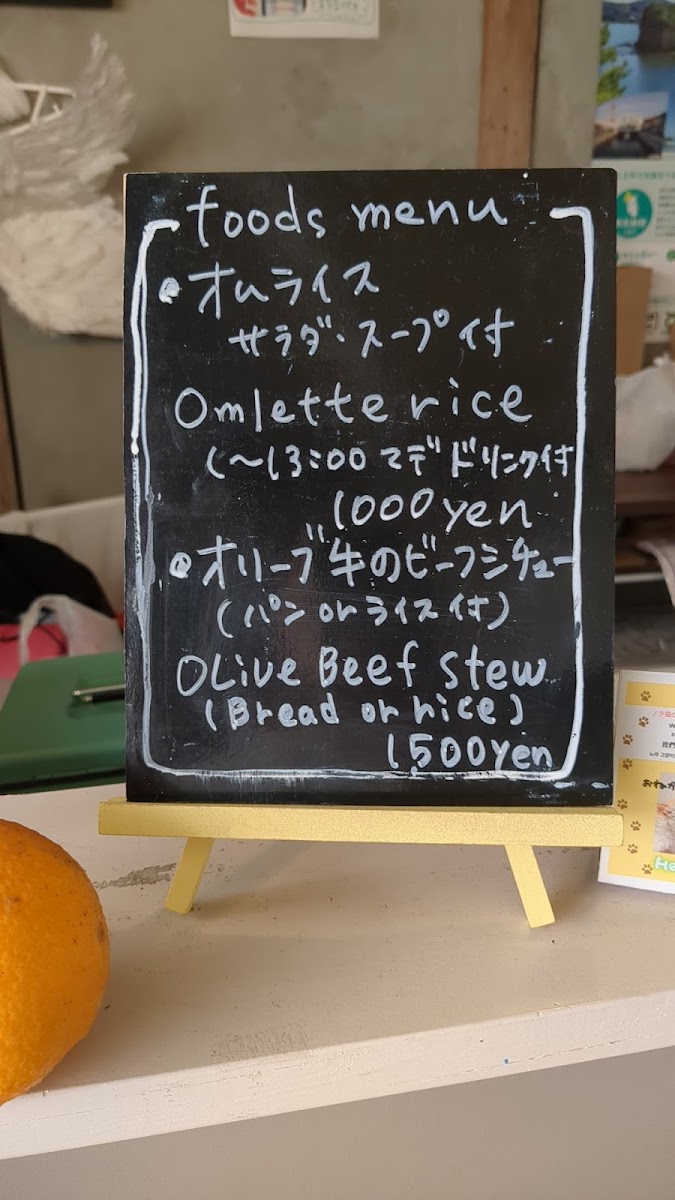 foods menu
•オムライス
サラダ・スープ付
Omlette rice
(〜13:00マデドリンク付
1000yen
•オリーブ牛のビーフシチュー
(パンorライス付)
OLive Beef stew
(Bread or rice)
1500yen